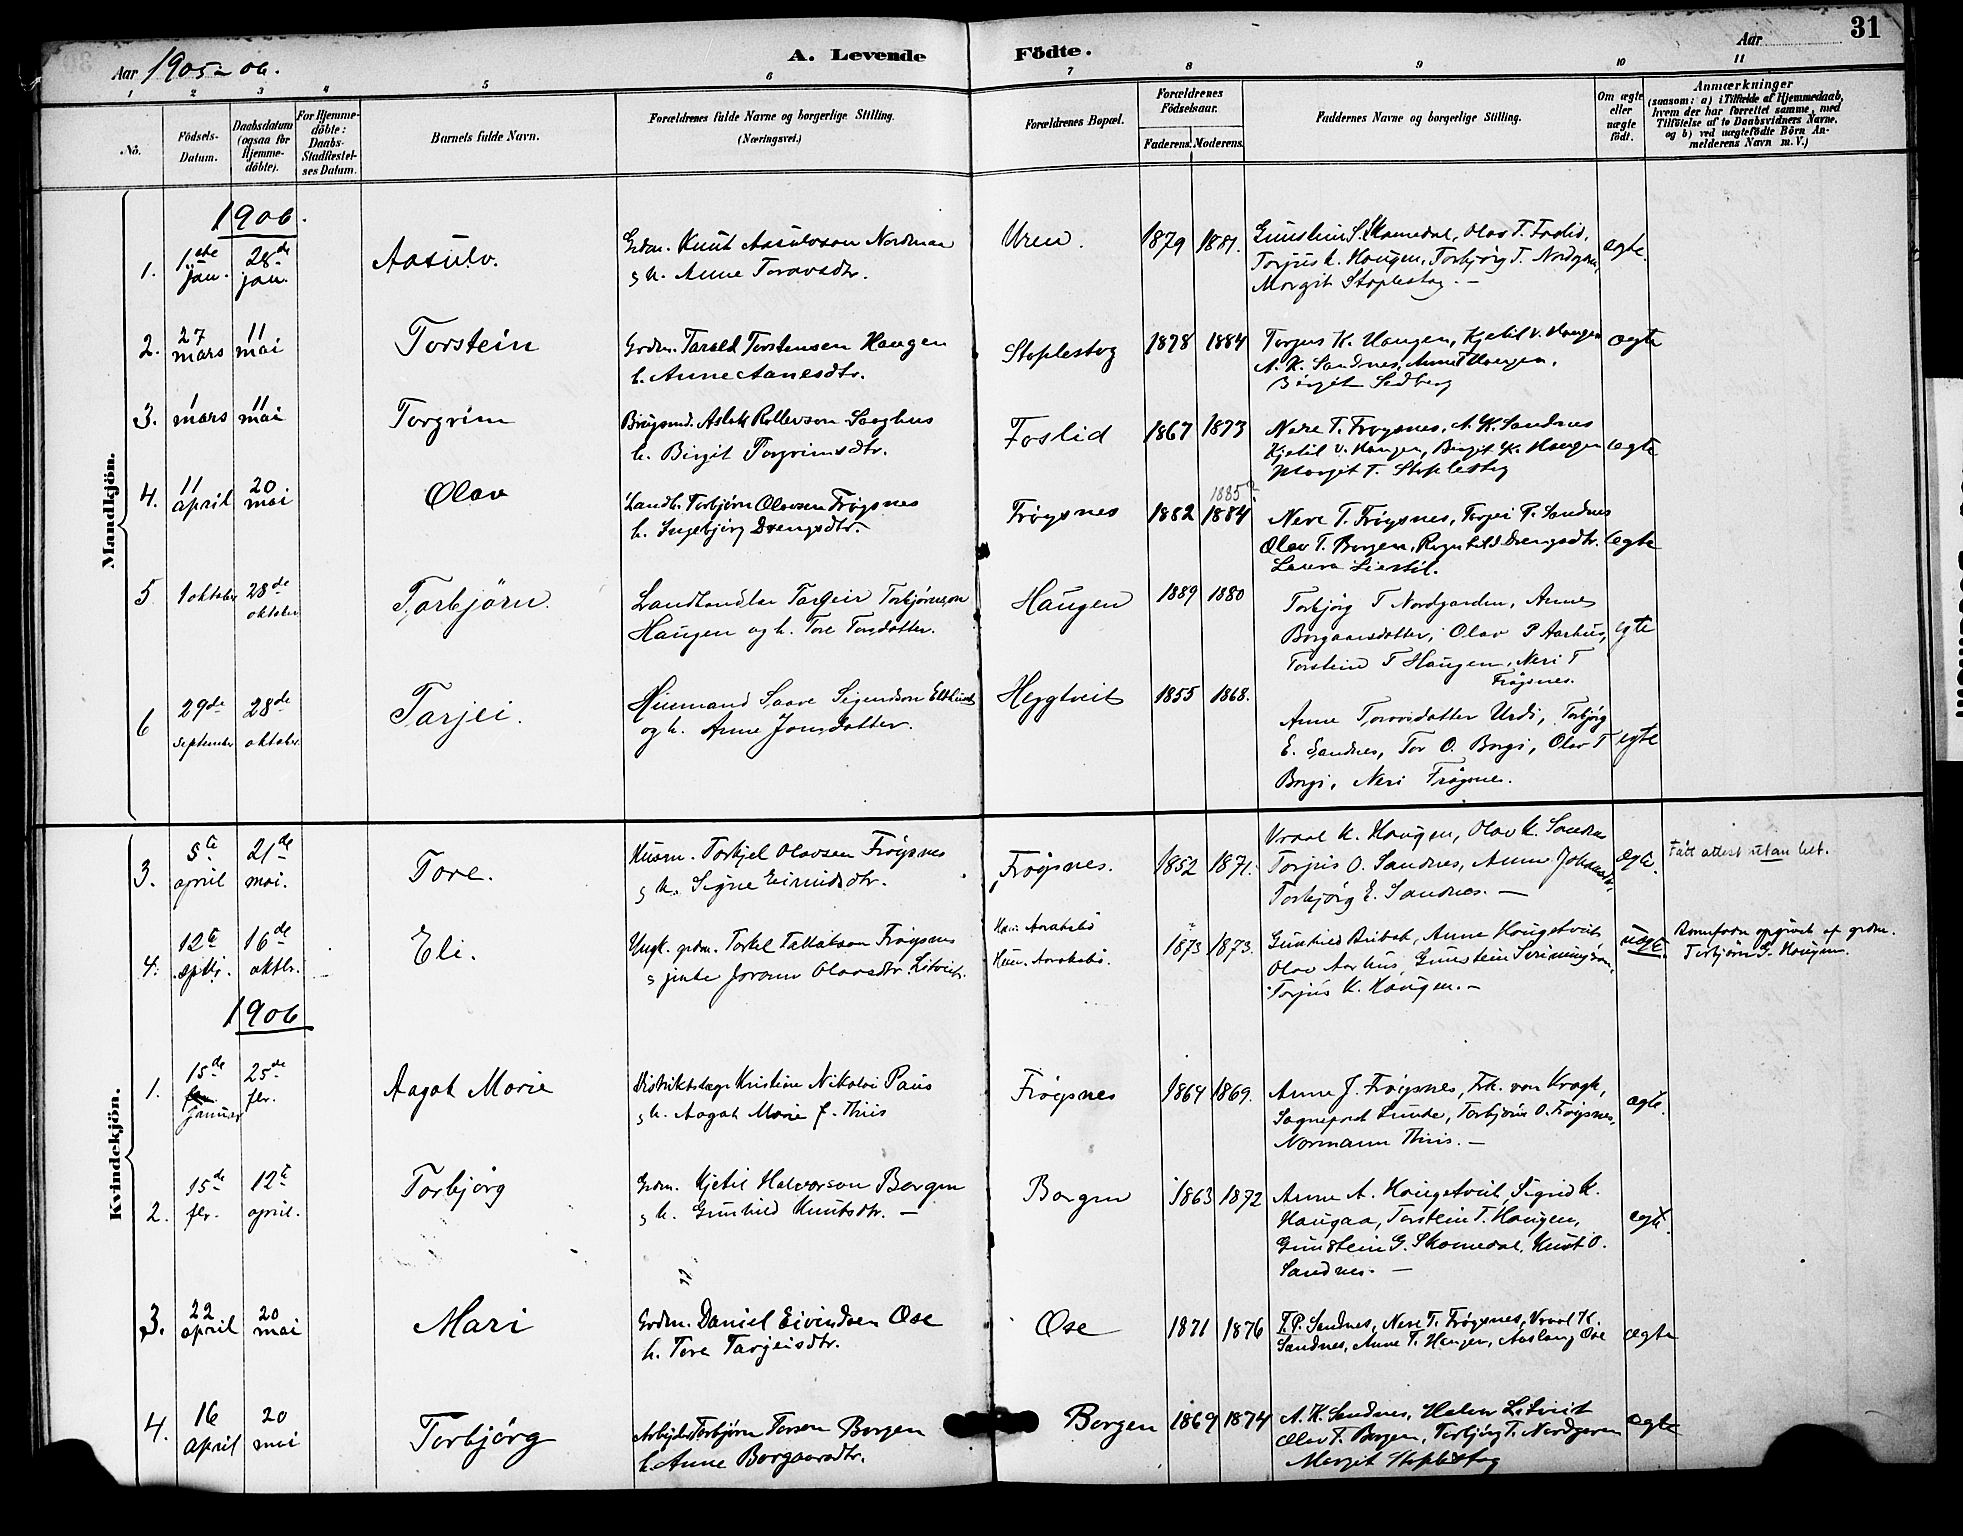 31
Aar 1905-06.
A. Levende Födte.
Aar
1 2 3 4 5 6 7 8 9 10 11
No.
Födsels-Datum.
Daabsdatum (ogsaa for Hjemme-döbte).
For Hjemme-döbte: Daabs-Stadfæstel-ses Datum.
Barnets fulde Navn.
Forældrenes fulde Navne og borgerlige Stilling.
(Næringsvei.)
Forældrenes Bopæl.
Forældrenes Födselsaar.
Faderens. Moderens.
Faddernes Navne og borgerlige Stilling.
Om ægte eller uægte födt.
Anmærkninger
(saasom: a) i Tilfælde af Hjemmedaab,
hvem der har forrettet samme, med
Tilföielse af to Daabsvidners Navne,
og b) ved uægtefödte Börn An-
melderens Navn m. V.)
Mandkjön.
1906.
1. 1ste jan. 28de jan. Aasulv. Grdm. Knut Aasulvson Nordman
s h. Anne Toravsdtr.
Uren. 1879 1881. Gunstein S. Skomedal, Olav T. Foslid,
Torjus K. Haugen, Torbjørg T. Nordgaren,
Margit Stoplestog. —
ægte.
2. 27 mars 11 mai Torstein Grdm. Tarald Torstensen Haugen
h. Anne Aanesdtr.
Stoplestog 1878 1884 Torjus K. Haugen, Kjetil V. Haugen
A. K. Sandnes, Anne T Haugen,
Birgit Sedberg
ægte
3. 1 mars 11 mai Torgrim Brugsmd. Aslak Rollevson Saghus
h. Birgit Torgrimsdtr.
Foslid 1867 1873 Nere T. Frøysnes, A. K. Sandnes
Kjetil V. Haugen, Birgit K. Haugen
Margit T. Stoplestog
ægte
4. 11 april 20 mai Olav Landh. Torbjørn Olavsen Frøysnes
h. Ingebjørg Drengsdtr.
Frøysnes 1882 1884 1885 Nere T. Frøysnes, Torjei P. Sandnes
Olav T. Borgen, Ragnhild Drengsdtr.
Laura Liestøl.
ægte
5 1 oktober 28de oktober Torbjørn. Landhandler Targeir Torbjørnson
Haugen og h. Tore Torsdatter.
Haugen 1889 1880 Torbjørg T Nordgarden, Annes
Borgaarsdatter, Olav P Aarhus,
Torstein T Haugen, Neri T
Frøysnes.
egte
6 29de september 28de oktober Tarjei. Husmand Saave Sigurdson
og h. Anne Jonsdatter.
Heggtveit 1855 1868. Anne Toravsdatter Urdi, Torbjørg
E. Sandnes, Tor O. Borgi, Olav T
Borgi, Neri Frøysnes.
egte
Kvindekjön.
3. 5te april 21de mai. Tore. Husm. Torkjel Olavsen Frøysnes
s h. Signe Eivindsdtr.
Frøysnes. 1852 1871. Vraal K. Haugen, Olav K. Sandnes
Torjus O. Sandnes, Anne
Torbjørg E. Sandnes. —
ægte. Fått attest utan let.
4. 12te septbr. 16de oktbr. Eli. Ungk. grdm. Torkel Tallakson Frøysnes
s jente Joronn Olavsdtr. Litveit.
Han: Aaraksbø
Hun: Aaraksbø.
1873 1873. Gunhild Bubak, Anne Haugetveit
Olav Aarhus, Gunstein
Torjus K. Haugen. —
uægte. opgivet af grdm.
Torbjørn G. Haugen.
1906
1. 15de januar 25de fbr. Aagot Marie Distriktslæge Kristian Nikolai Paus
s h. Aagot Marie f. Thiis
Frøysnes 1864 1869. Anne J. Frøysnes, Frk. von Kragh,
Sogneprest Lunde, Torbjørn O. Frøysnes,
Normann Thiis. —
ægte.
2. 15de fbr. 12te april. Torbjörg Grdm. Kjetil Halvorson Borgen
s h. Gunhild Knutsdtr. —
Borgen 1863 1872 Anne A. Haugetveit, Sigrid K.
Haugaa, Torstein T. Haugen,
Gunstein G. Skomedal, Knut O.
Sandnes. —
egte.
3. 22 april 20 mai Mari Grdm. Daniel Eivindsen Ose
h. Tore Tarjeisdtr.
Ose 1871 1876 T. P. Sandnes, Nere T. Frøysnes, Vraal K.
Sandnes, Anne T. Haugen, Aaslaug Ose
ægte
4. 16 april 20 mai Torbjørg Arbeider Torbjørn Torsen Borgen
h. Anne Borgaarsdtr.
Borgen 1869 1874 A. K. Sandnes, Halvor Litveit
Olav T. Borgen, Torbjørg T. Nordgaren
Margit Stoplestog
ægte